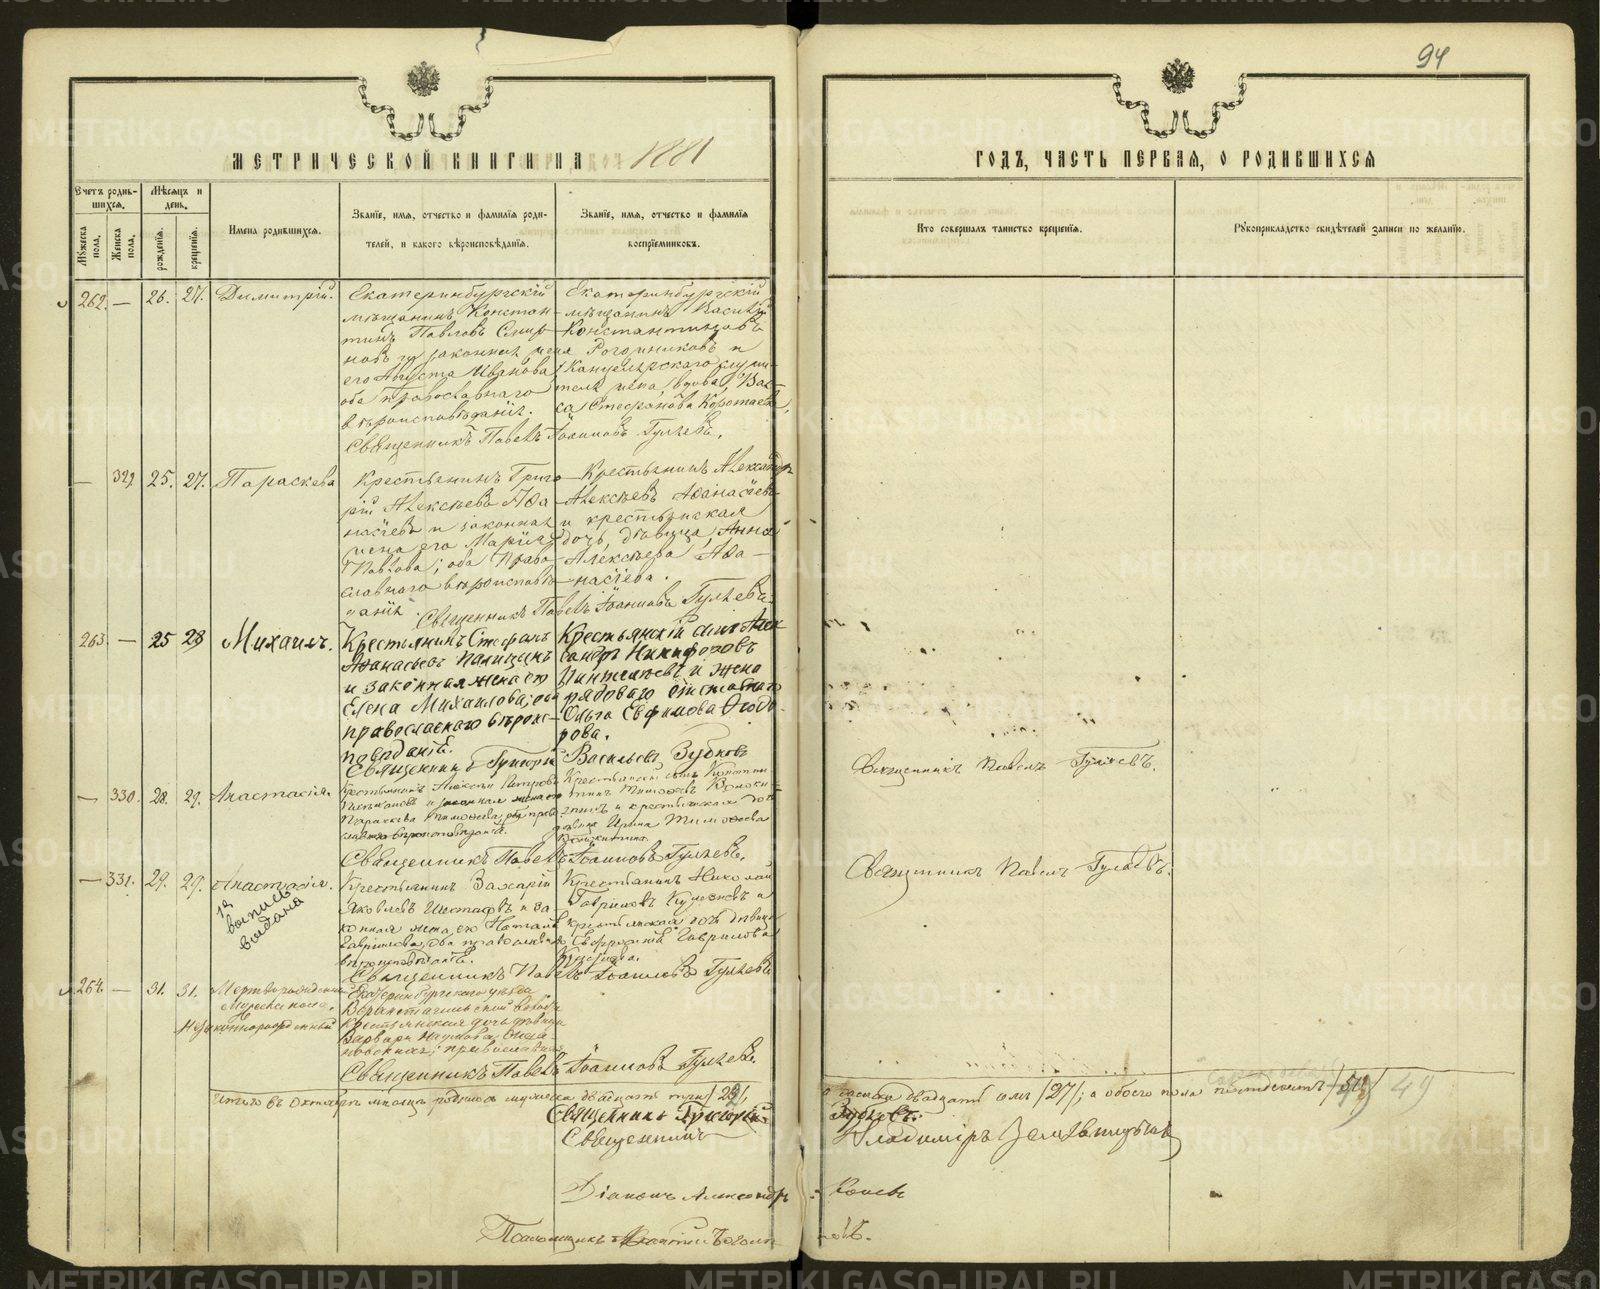 94
МЕТРИЧЕСКОЙ КНИГИ НА 1881
ГОДЪ, ЧАСТЬ ПЕРВАЯ, О РОДИВШИХСЯ
Счетъ родив-
шихся.
Мѣсяцъ и
день.
Мужеска пола.
Женска пола.
рожденія.
крещенія.
Имена родившихся.
Званіе, имя, отчество и фамилія роди-
телей, и какого вѣроисповѣданія.
Званіе, имя, отчество и фамилія
воспріемниковъ.
Кто совершалъ таинство крещенія.
Рукоприкладство свидѣтелей записи по желанію.
262. — 26. 27. Димитрій.
Екатеринбургскій
мѣщанинъ Констан-
тинъ Павловъ Смир-
новъ и законная жена
его Августа Иванова
оба православнаго
вѣроисповѣданія.
Екатеринбургскій
мѣщанинъ Василій
Константиновъ
и
Канцелярскаго служи-
теля жена, вдова, Вас-
са Стефанова
Священникъ Павелъ Іоанновъ Гуляевъ.
— 329. 25. 27. Параскева
Крестьянинъ Григо-
рій Алексѣевъ Афа-
насіевъ и законная
жена его Марія
Павлова; оба право-
славнаго вѣроисповѣ-
данія.
Крестьянинъ Александръ
Алексѣевъ Афанасіевъ
и крестьянская
дочь, дѣвица, Анна
Алексѣева Афа-
насіева.
Священникъ Павелъ Іоанновъ Гуляевъ.
263. — 25 28 Михаилъ.
Крестьянинъ Стефанъ
Афанасьевъ
и законная жена его
Елена Михаилова; оба
православнаго вѣроис-
повѣданія.
Крестьянскій сынъ Алек-
сандръ Никифоровъ
и жена
рядоваго
Ольга Евфимова Ѳеодо-
рова.
Священникъ Григорій Васильевъ Зубковъ
Священникъ Павелъ Гуляевъ.
— 330. 28. 29. Анастасія.
Крестьянинъ Алексѣй Петровъ
и законная жена его
Параскева Тимофеева, оба право-
славнаго вѣроисповѣданія.
Крестьянскій сынъ Констан-
тинъ Тимофеевъ
и крестьянская дочь
дѣвица Ирина Тимофеева
Священникъ Павелъ Іоанновъ Гуляевъ.
Священникъ Павелъ Гуляевъ.
— 331. 29. 29. Анастасія.
выпись
выдана
Крестьянинъ Захарій
Яковлевъ Шестаковъ и за-
конная жена его Наталія
Гаврилова, оба православнаго
вѣроисповѣданія.
Крестьянинъ Николай
Гавриловъ Кузнецовъ и
крестьянская дочь дѣвица
Евфросинія Гаврилова
Кузнецова.
Священникъ Павелъ Іоанновъ Гуляевъ
264. — 31. 31. Мертворожденный
Мужеска пола.
Незаконнорожденный
Екатеринбургскаго уѣзда
Верхнетагильской волости
крестьянская дочь дѣвица
Варвара Наумова
православная
Священникъ Павелъ Іоанновъ Гуляевъ.
Итого въ Октябрѣ мѣсяцѣ родилось мужеска двадцать три / 23 /,
а женска двадцать семь / 27 /; а обоего пола пятьдесятъ / 50 / 49
Священникъ Григорій Зубковъ.
Священникъ Владиміръ Земляницынъ
Діаконъ Александръ Коневъ
Псаломщикъ